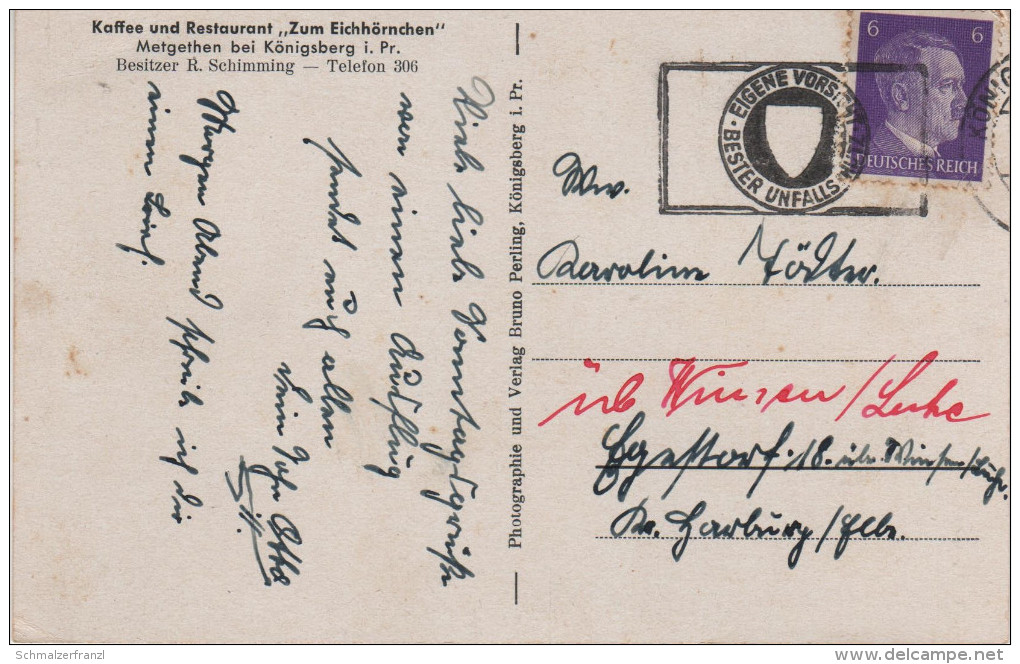 Kaffee und Restaurant „Zum Eichhörnchen"
Metgethen bei Königsberg i. Pr.
Besitzer R. Schimming — Telefon 306
Viele liebe Sonntagsgrüße
von einem Ausflug
sendet euch allen
dein Sohn Otto
Morgen Abend schreib ich dir
einen Brief.
Photographie und Verlag Bruno Perling, Königsberg i. Pr.
6 6
DEUTSCHES REICH
EIGENE VORSICHT
BESTER UNFALLSCHUTZ
KÖNIG
Ww.
Karoline Tödter.
üb Winsen/Luhe
Egestorf. 18. üb. Winsen/Luhe.
Kr. Harburg/Elbe.
Schmalzerfranzl
delcampe.net